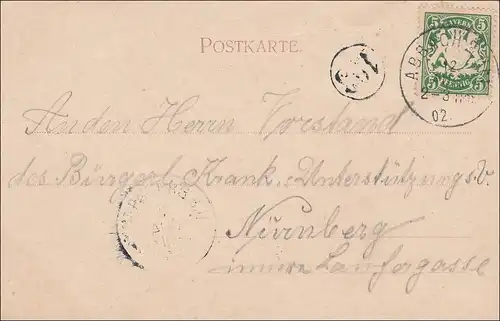 POSTKARTE.
5 BAYERN 5
PFENNIG
12
2-3 N
02.
An den Herrn Vorstand
des Bürgerl. Krank. Unterstützungsv.
Nürnberg
innere Laufergasse